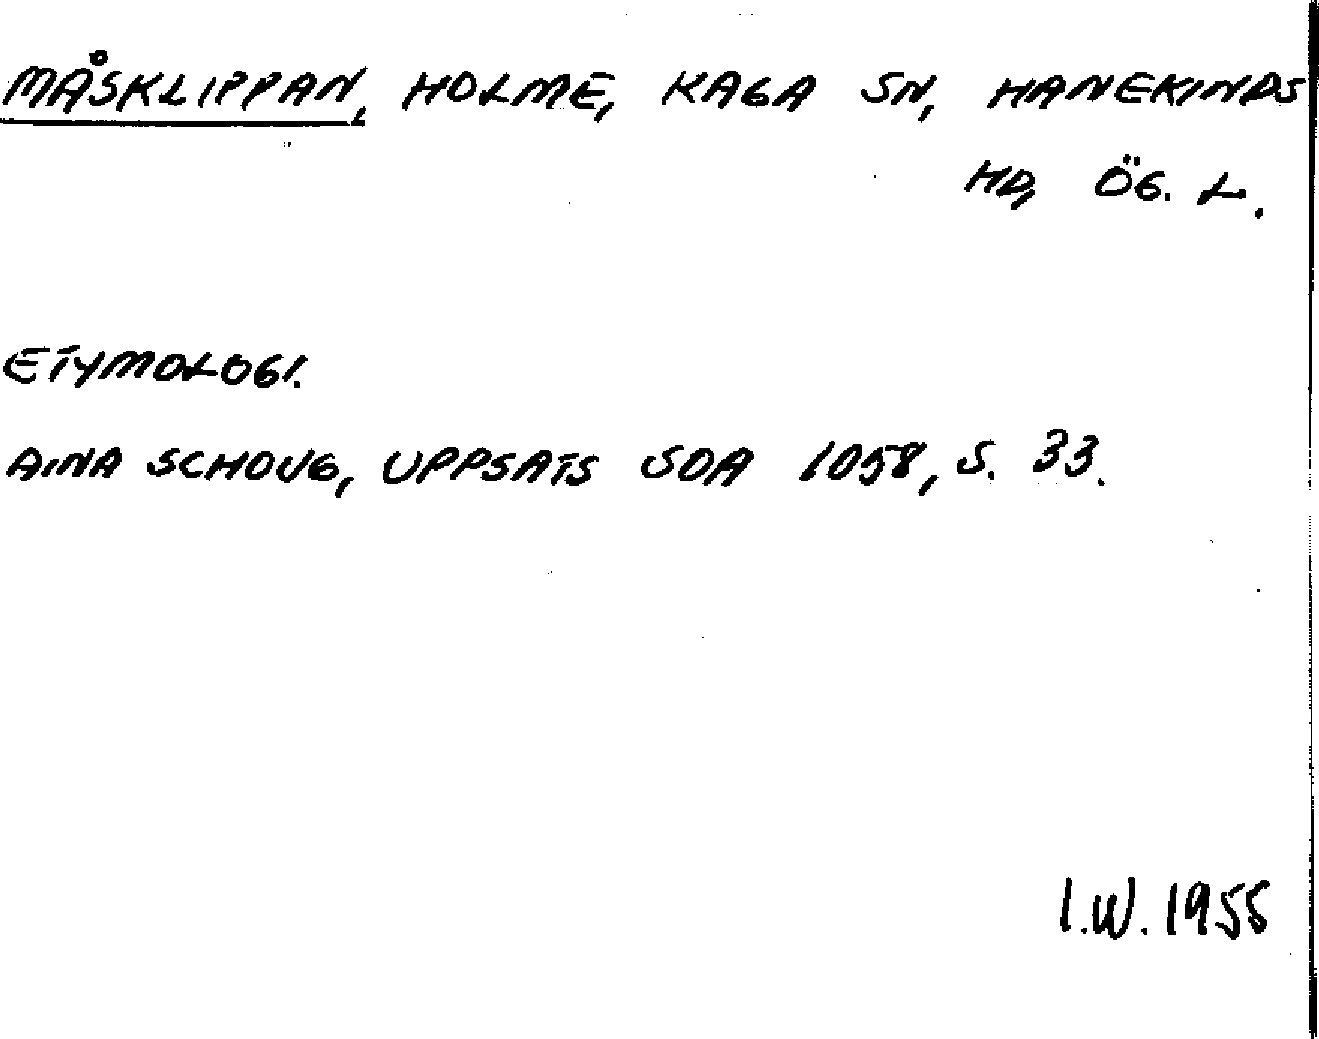 MÅSKLIPPAN, HOLME, KAGA SN, HANEKINDS
HD, ÖG. L.
ETYMOLOGI.
AINA SCHOUG, UPPSATS SOA 1058, S. 33.
I.W. 1955